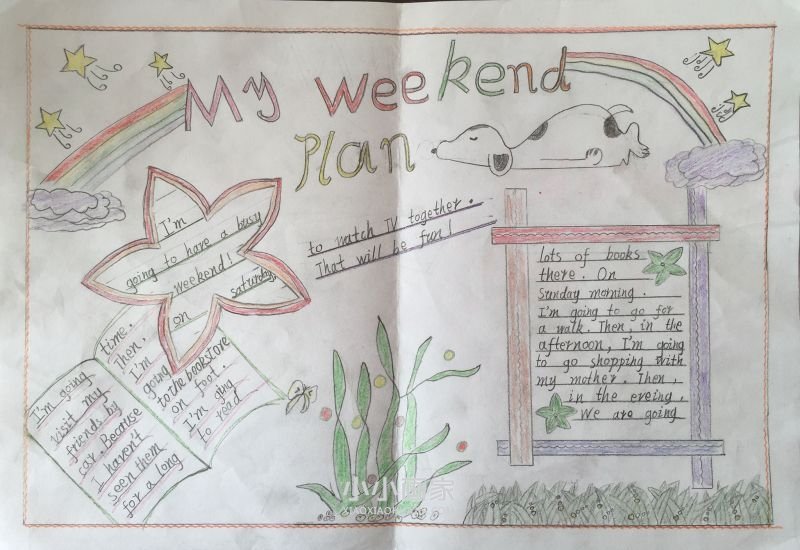 My weekend
Plan
I'm
going to have a busy
weekend!
on saturday,
I'm going
visit my
friends by
car. Because
I haven't
seen them
for a long
time.
Then.
I'm
going
to the bookstore
on foot.
I'm ging
to read
lots of books
there. On
Sunday morning.
I'm going to go for
a walk. Then, in the
afternoon, I'm going
to go shopping with
my mother. Then,
in the eveing,
We are going
to watch TV together.
That will be fun!
小小画家